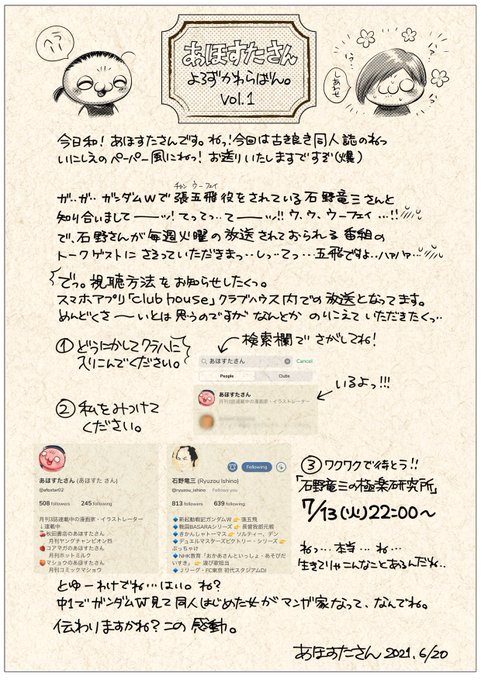 ヘラ
あほすたさん
よろずかわらばん。
Vol.1
しあわせ
今日和!あほすたさんです。ねっ!今回は古き良き同人誌のねっ
いにしえのペーパー風にねっ!お送りいたしますですぞ(爆)
ガ‥ガ‥ガンダムWで張五飛役をされている石野竜三さんと
チャン ウーフェイ
知り合いましてーーッ!てってっ‥てーーッ!!ウ、ウ、ウーフェイ…!!
で、石野さんが毎週火曜の放送されておられる番組の
トークゲストにさそっていただきまっ‥しっ‥てっ…五飛ですよ‥ハァハァ‥
でっ。視聴方法をお知らせしたくっ。
スマホアプリ「club house」クラブハウス内での放送となってます。
めんどくさーいとは思うのですがなんとかのりこえていただきたくっ‥
① どうにかしてクラハに
スリこんでください。
検索欄でさがしてね!
あほすたさん
Cancel
People
Clubs
あほすたさん
月刊3誌連載中の漫画家・イラストレーター
いるよっ!!!
② 私をみつけて
ください。
あほすたさん (あほすた さん)
@afostar02
508 followers 245 following
月刊3誌連載中の漫画家・イラストレーター
🏮連載中
秋田書店のあほすたさん
月刊ヤングチャンピオン烈
コアマガのあほすたさん
月刊ホットミルク
マショウのあほすたさん
月刊コミックマショウ
Following
石野竜三 (Ryuzou Ishino)
@ryuzou_ishino Follows you
813 followers 907 following
🔷新起動戦記ガンダムW👉張五飛
🔷戦国BASARAシリーズ👉長曾我部元親
🔷きかんしゃトーマス👉ソルティー、デン
🔷デュエルマスターズビクトリー・シリーズ👉
ぶっちゃけ
🔷NHK教育「おかあさんといっしょ・あそびだ
いすき」👉遊び歌担当
🔷Jリーグ・FC東京 初代スタジアムDJ
③ ワクワクで待とう!!
「石野竜三の極楽研究所」
7/13(火)22:00〜
ねっ…本当…ね…
生きてりゃこんなことあるんだね‥
とゆーわけでね…はい。ね?
中1でガンダムW見て同人はじめた女がマンガ家なって、なんでね。
伝わりますかね?この感動。
あほすたさん 2021.6/20